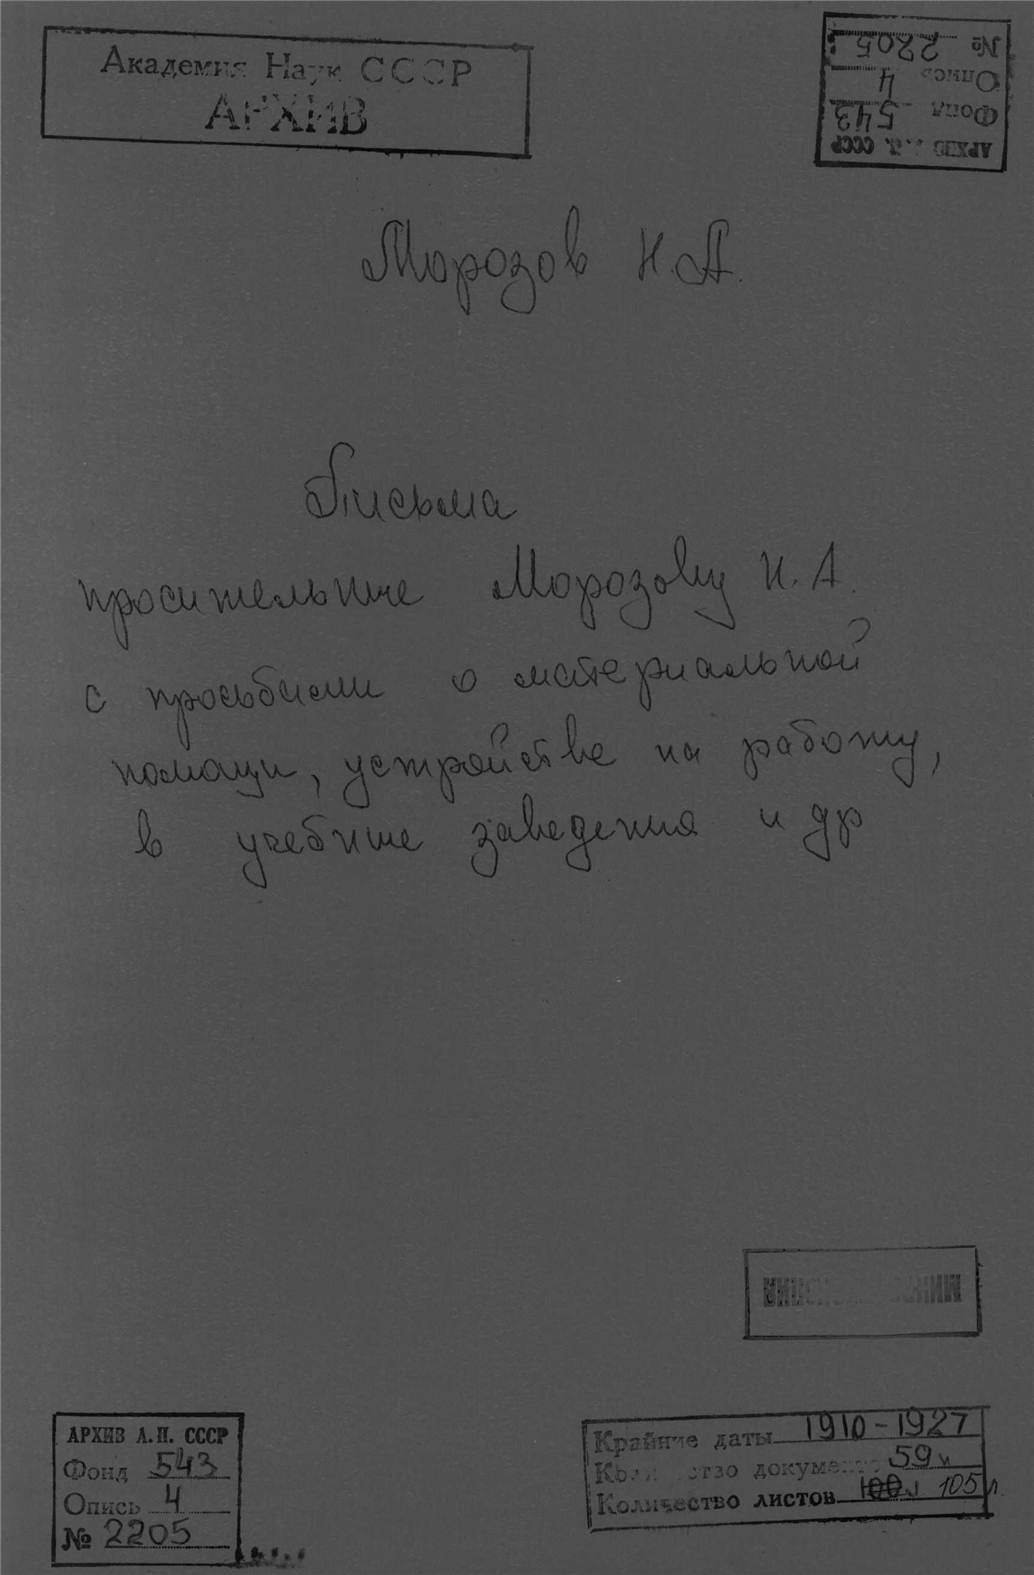 Академия Наук СССР
АРХИВ
№ 2205
Опись 4
Фонд 543
АРХИВ А.Н. СССР
Морозов Н.А.
Письма
просительные Морозову Н.А.
с просьбами о материальной
помощи, устройстве на работу,
в учебные заведения и др
АРХИВ А.Н. СССР
Фонд 543
Опись 4
№ 2205
Крайние даты 1910-1927
Количество документов 59
Количество листов 100 л 105 л.